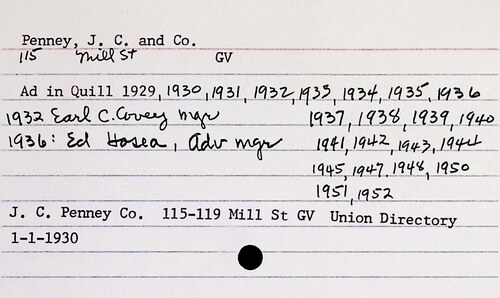 Penney, J. C. and Co.
115 Mill St GV
Ad in Quill 1929, 1930, 1931, 1932, 1933, 1934, 1935, 1936
1932 Earl C. Covey mgr 1937, 1938, 1939, 1940
1936: Ed Hosea, Adv mgr 1941, 1942, 1943, 1944
1945, 1947, 1948, 1950
1951, 1952
J. C. Penney Co. 115-119 Mill St GV Union Directory
1-1-1930